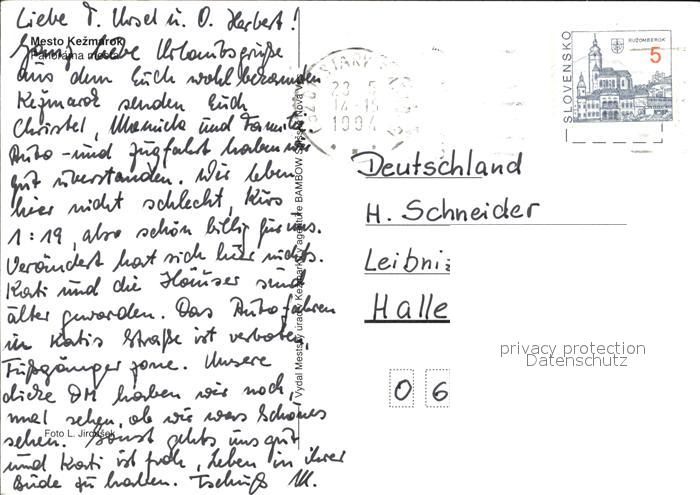 Liebe T. Ursel u. O. Herbert!
Mesto Kežmarok
Panoráma mesta
Ganz liebe Urlaubsgrüße
aus dem Euch wohl bekannten
Kežmarok senden Euch
Christel, Monika und Familie.
Auto- und Zugfahrt haben wir
gut überstanden. Wir leben
hier nicht schlecht, Kurs
1:19, also schön billig für uns.
Verändert hat sich hier nichts.
Kati und die Häuser sind
älter geworden. Das Autofahren
in Katis Straße ist verboten,
Fußgänger zone. Unsere
dicke DM haben wir noch,
mal sehen, ob wir was Schönes
sehen. Sonst gehts uns gut
Foto L. Jiroušek
und Kati ist froh, Leben in ihrer
Bude zu haben. Tschüß M.
Vydal Mestský úrad v Kežmarku v agentúre BAMBOW Spišská Nová V
STARÝ
23. 5
14-15
1994
SLOVENSKO
RUŽOMBEROK
5
Deutschland
H. Schneider
Leibniz
Halle
06
privacy protection
Datenschutz